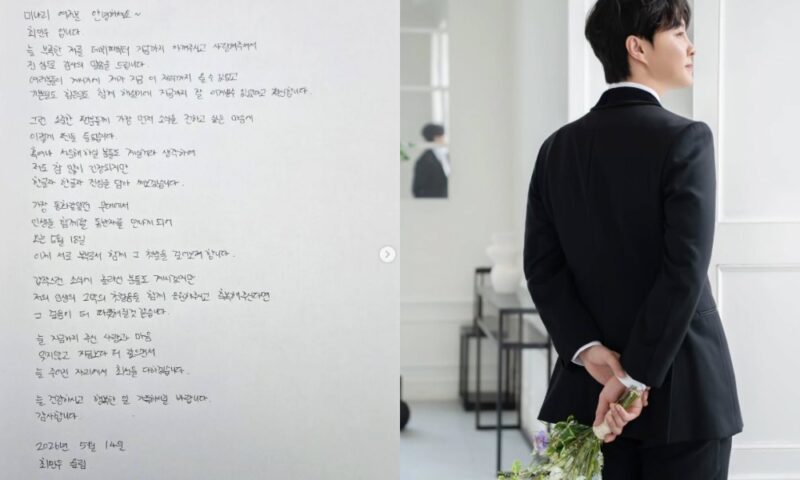 미나리 여러분 안녕하세요~
최민우 입니다.
늘 부족한 저를 데뷔때부터 지금까지 아껴주시고 사랑해주셔서
진심으로 감사의 말씀을 드립니다
여러분들이 계셨기에 제가 지금 이 자리까지 올 수 있었고
기쁜일도 힘든일도 함께 해주셨기에 지금까지 잘 이겨낼수 있었다고 확신합니다.
그런 소중한 팬분들께 가장 먼저 소식을 전하고 싶은 마음에
이렇게 펜을 들었습니다
혹여나 서운해하실 분들도 계실거라 생각하여
저도 참 많이 긴장되지만
한글자 한글자 진심을 담아 써보겠습니다.
가장 동화같았던 무대에서
인생을 함께할 동반자를 만나게 되어
오는 6월 18일
이제 서로 부부로서 함께 그 첫발을 걸어보려 합니다.
갑작스런 소식에 놀라신 분들도 계시겠지만
저의 인생의 2막의 첫걸음을 함께 응원해주시고 축복해주신다면
그 걸음이 더 따뜻해질것 같습니다.
늘 지금까지 주신 사랑과 마음
잊지않고 지금보다 더 깊으면서
늘 주어진 자리에서 최선을 다하겠습니다.
늘 건강하시고 행복한 일 가득하시길 바랍니다.
감사합니다.
2026년 5월 14일
최민우 올림